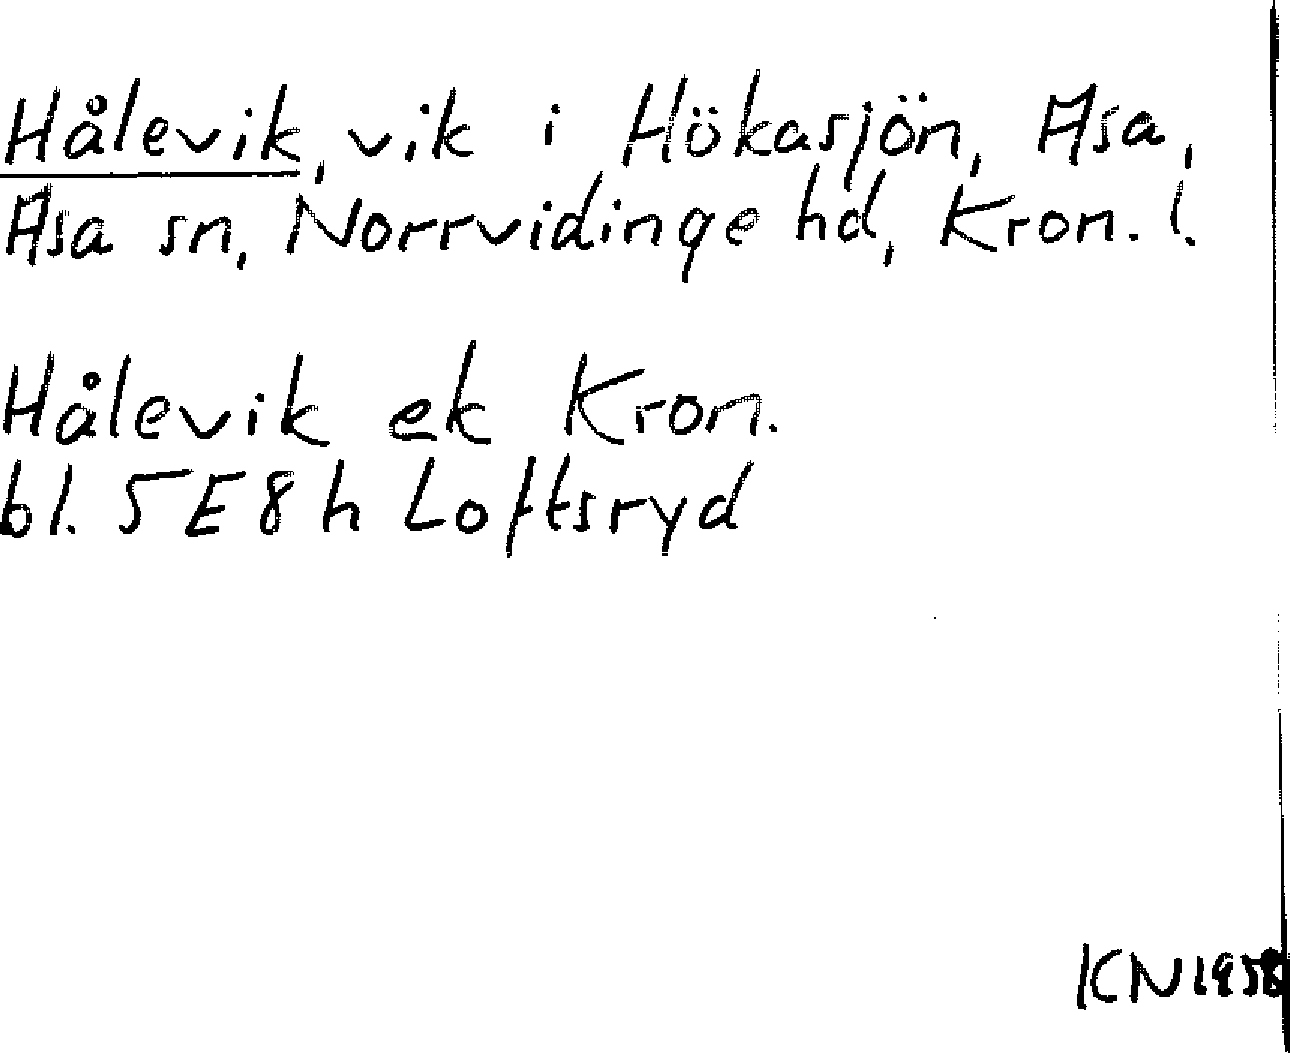 Hålevik, vik i Hökasjön, Asa,
Asa sn, Norrvidinge hd, Kron. l.
Hålevik ek Kron.
bl. 5E8h Loftsryd
KN 1958